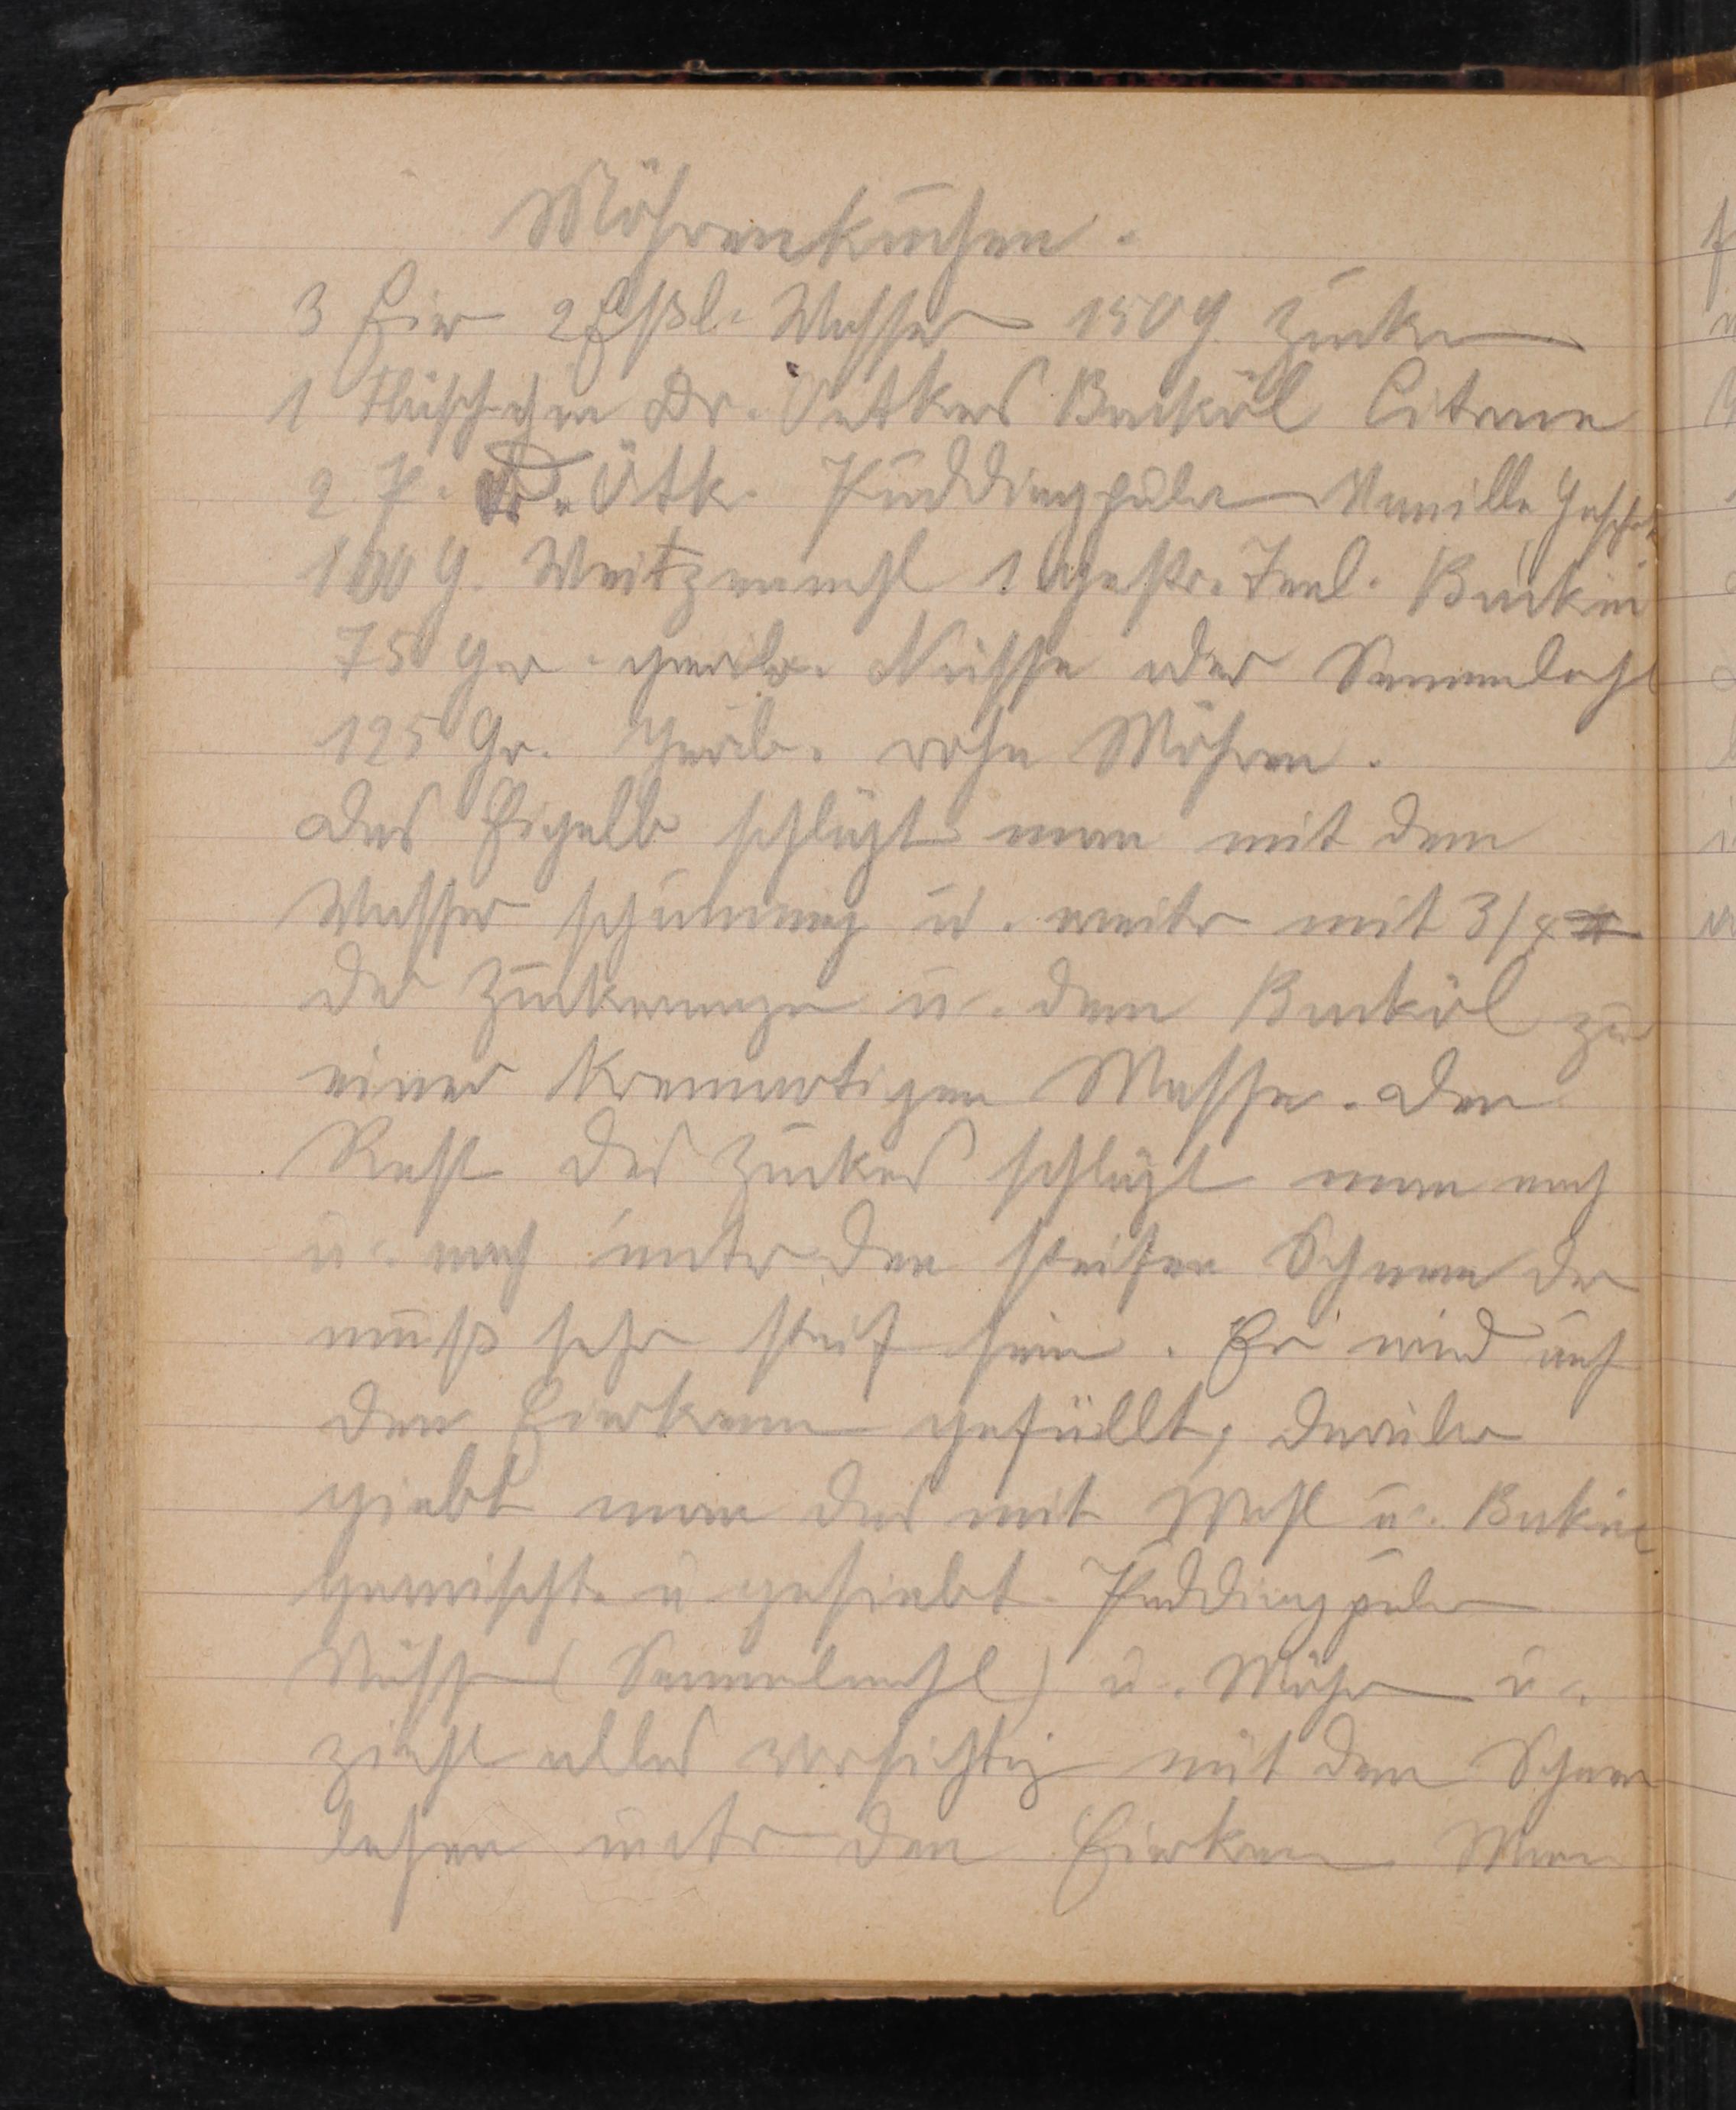 Möhrenkuchen.
3 Eier 2 Eßl. Wasser 150 g Zucker
1 Fläschchen Dr. Oetkers Backöl Citrone
2 P. Dr. Ötk. Puddingpulver Vanille Geschm
100 g. Weitzenmehl 1 gestr. Teel. Backin
75 Gr. gerieb. Nüsse oder Semmelmehl
125 Gr. gerieb. rohe Möhren.
Das Eigelb schlägt man mit dem
Wasser schaumig u. weiter mit 3/4
der Zuckermenge u. dem Backöl zu
einer kremartigen Masse. Den
Rest des Zuckers schlägt man nach
u. nach unter den steifen Schnee der
muß sehr steif sein. Er wird auf
den Eierkrem gefüllt, darüber
giebt man das mit Mehl u. Backin
gemischt. u gesiebt. Puddingpulver
Nüsse (Semmelmehl) u. Möhren u.
zieht alles vorsichtig mit dem Schnee
besen unter den Eierkrem Man